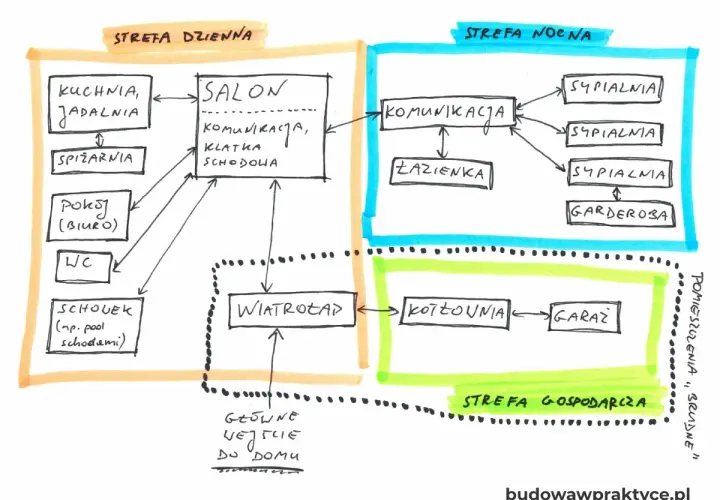 STREFA DZIENNA
STREFA NOCNA
KUCHNIA,
JADALNIA
SPIŻARNIA
POKÓJ
(BIURO)
WC
SCHOWEK
(np. pod
schodami)
SALON
KOMUNIKACJA,
KLATKA
SCHODOWA
WIATROŁAP
GŁÓWNE
WEJŚCIE
DO DOMU
KOMUNIKACJA
ŁAZIENKA
SYPIALNIA
SYPIALNIA
SYPIALNIA
GARDEROBA
KOTŁOWNIA
GARAŻ
STREFA GOSPODARCZA
POMIESZCZENIA „BRUDNE"
budowawpraktyce.pl